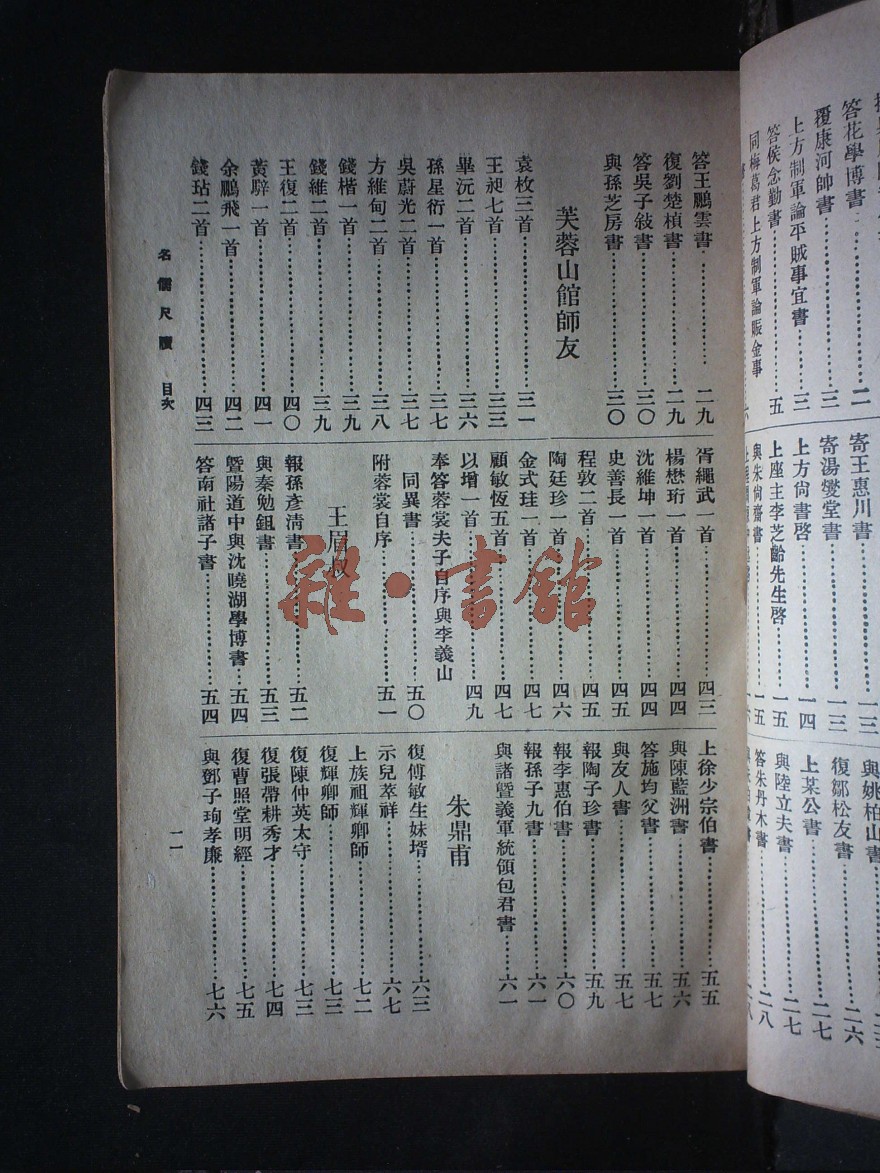 答花學博書……二
覆康河帥書……三
上方制軍論平賊事宜書……三
答侯念勤書……五
同梅葛君上方制軍論賑金事
寄王惠川書……一三
寄湯燮堂書……一三
上方尙書啓……一四
上座主李芝齡先生啓……一五
與朱尙齋書……一五
與姚柏山書
復鄒松友書……二六
上某公書……二七
與陸立夫書……二七
答朱丹木書……二八
答王鵬雲書……二九
復劉楚楨書……二九
答吳子敍書……三〇
與孫芝房書……三〇
芙蓉山館師友
袁枚三首……三一
王昶七首……三三
畢沅二首……三六
孫星衍一首……三七
吳蔚光二首……三七
方維甸二首……三八
錢楷一首……三九
錢維二首……三九
王復二首……四〇
黃騂一首……四一
余鵬飛一首……四二
錢玷二首……四三
胥繩武一首……四三
楊懋珩一首……四四
沈維坤一首……四四
史善長一首……四五
程敦二首……四五
陶廷珍一首……四六
金式珪一首……四七
顧敏恆五首……四七
以增一首……四九
奉答蓉裳夫子自序與李義山
同異書……五〇
附蓉裳自序……五一
王眉叔
報孫彥清書……五二
與秦勉鉏書……五三
暨陽道中與沈曉湖學博書……五四
答南社諸子書……五四
上徐少宗伯書……五五
與陳藍洲書……五六
答施均父書……五七
與友人書……五七
報陶子珍書……五九
報李惠伯書……六〇
報孫子九書……六一
與諸暨義軍統領包君書……六一
朱鼎甫
復傅敏生妹壻……六三
示兒萃祥……六七
上族祖輝卿師……七二
復輝卿師……七三
復陳仲英太守……七三
復張帶耕秀才……七四
復曹照堂明經……七五
與鄧子珣孝廉……七六
名儒尺牘 目次
二
雜·書館